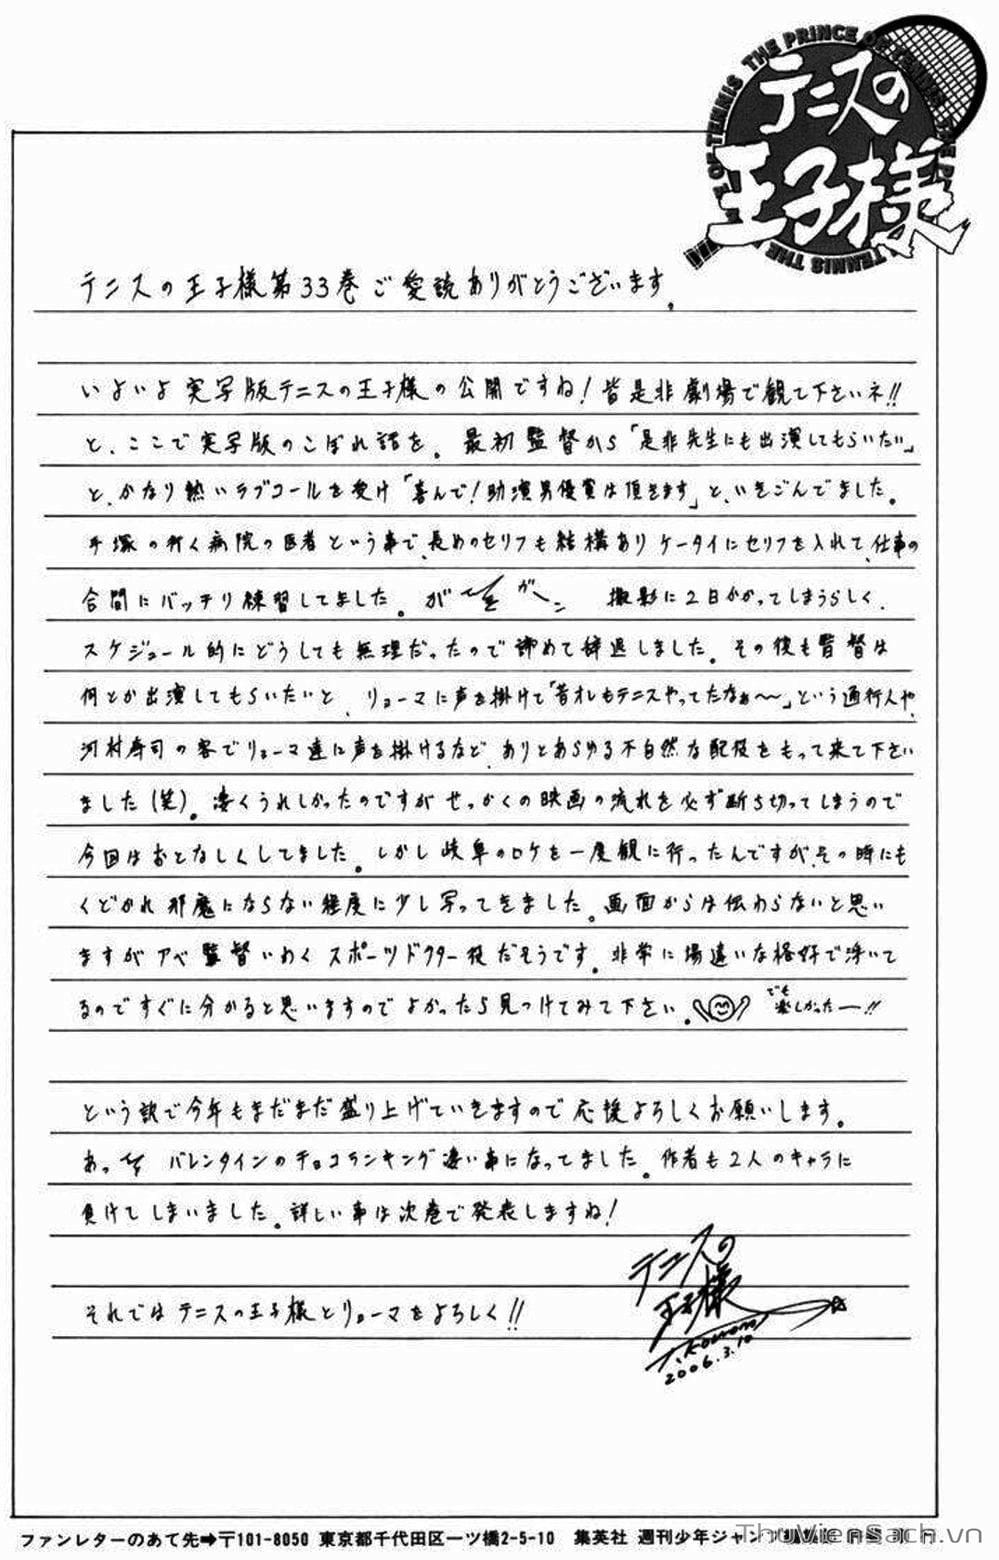 THE PRINCE OF TENNIS
テニスの
王子様
テニスの王子様第33巻ご愛読ありがとうございます。
いよいよ実写版テニスの王子様の公開ですね！皆是非劇場で観て下さいネ!!
と、ここで実写版のこぼれ話を。最初監督から「是非先生にも出演してもらいたい」
と、かなり熱いラブコールを受け「喜んで！助演男優賞は頂きます」と、いきごんでました。
手塚の行く病院の医者という事で、長めのセリフも結構ありケータイにセリフを入れて、仕事の
合間にバッチリ練習してました。が 撮影に2日かかってしまうらしく、
スケジュール的にどうしても無理だったので諦めて辞退しました。その後も監督は
何とか出演してもらいたいと、リョーマに声を掛けて「昔オレもテニスやってたなぁ〜〜」という通行人や、
河村寿司の客でリョーマ達に声を掛けるなど、ありとあらゆる不自然な配役をもって来て下さい
ました(笑)。凄くうれしかったのですがせっかくの映画の流れを必ず断ち切ってしまうので
今回はおとなしくしてました。しかし岐阜のロケを一度観に行ったんですが、その時にも
くどかれ邪魔にならない程度に少し写ってきました。画面からは伝わらないと思い
ますがアベ監督いわくスポーツドクター役だそうです。非常に場違いな格好で浮いて
るのですぐに分かると思いますのでよかったら見つけてみて下さい。でも楽しかったー!!
という訳で今年もまだまだ盛り上げていきますので応援よろしくお願いします。
あっ バレンタインのチョコランキング凄い事になってました。作者も2人のキャラに
負けてしまいました。詳しい事は次巻で発表しますね！
それではテニスの王子様とリョーマをよろしく!!
テニスの
王子様
T.Konomi
2006.3.10
ファンレターのあて先➡〒101-8050 東京都千代田区一ツ橋2-5-10 集英社 週刊少年ジャンプ
ThuVienSach.vn